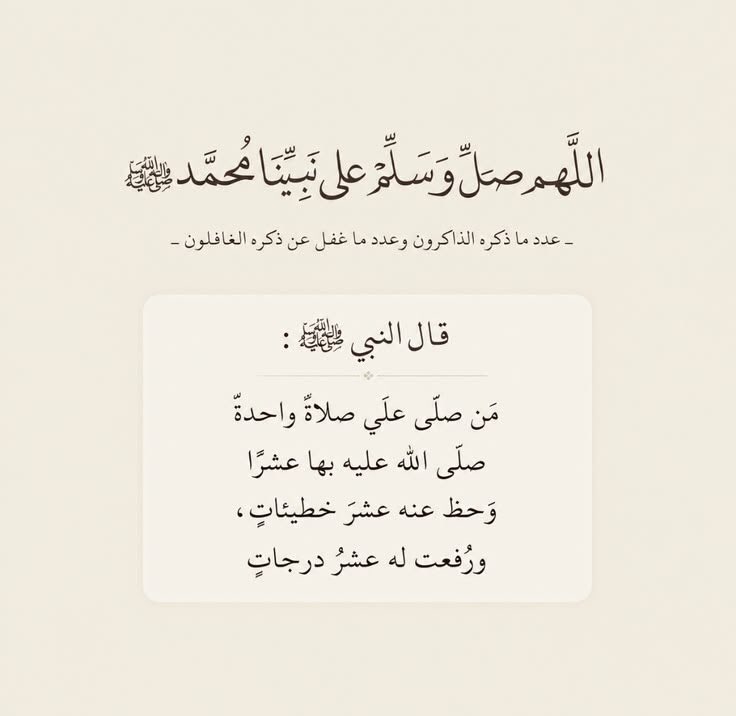 اللَّهم صَلِّ وَسَلِّمْ على نَبِيِّنَا مُحمَّد ﷺ
ـ عدد ما ذكره الذاكرون وعدد ما غفل عن ذكره الغافلون ـ
قال النبي ﷺ :
مَن صلّى علَي صلاةً واحدةً
صلّى الله عليه بها عشرًا
وَحظ عنه عشرَ خطيئاتٍ،
ورُفعت له عشرُ درجاتٍ